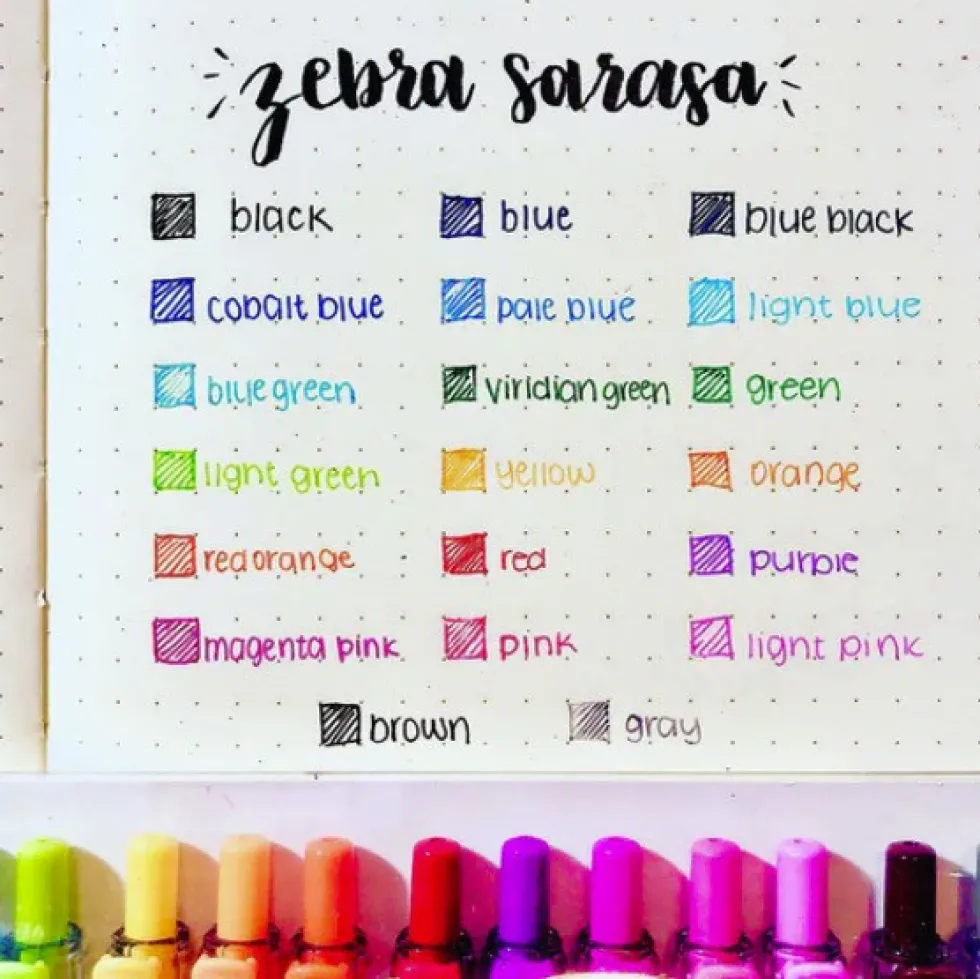 zebra sarasa
black blue blue black
cobalt blue pale blue light blue
blue green viridian green green
light green yellow orange
red orange red purple
magenta pink pink light pink
brown gray